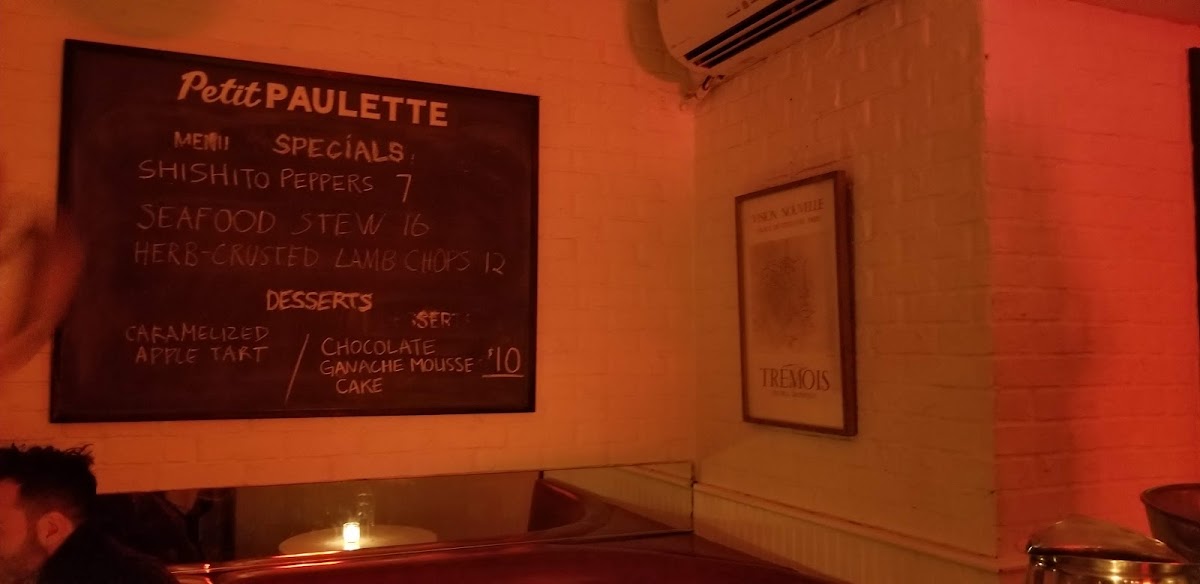 Petit PAULETTE
MENU SPECIALS
SHISHITO PEPPERS 7
SEAFOOD STEW 16
HERB-CRUSTED LAMB CHOPS 12
DESSERTS
SERT
CARAMELIZED
APPLE TART / CHOCOLATE
GANACHE MOUSSE - $10
CAKE
VISION NOUVELLE
TRÉMOIS